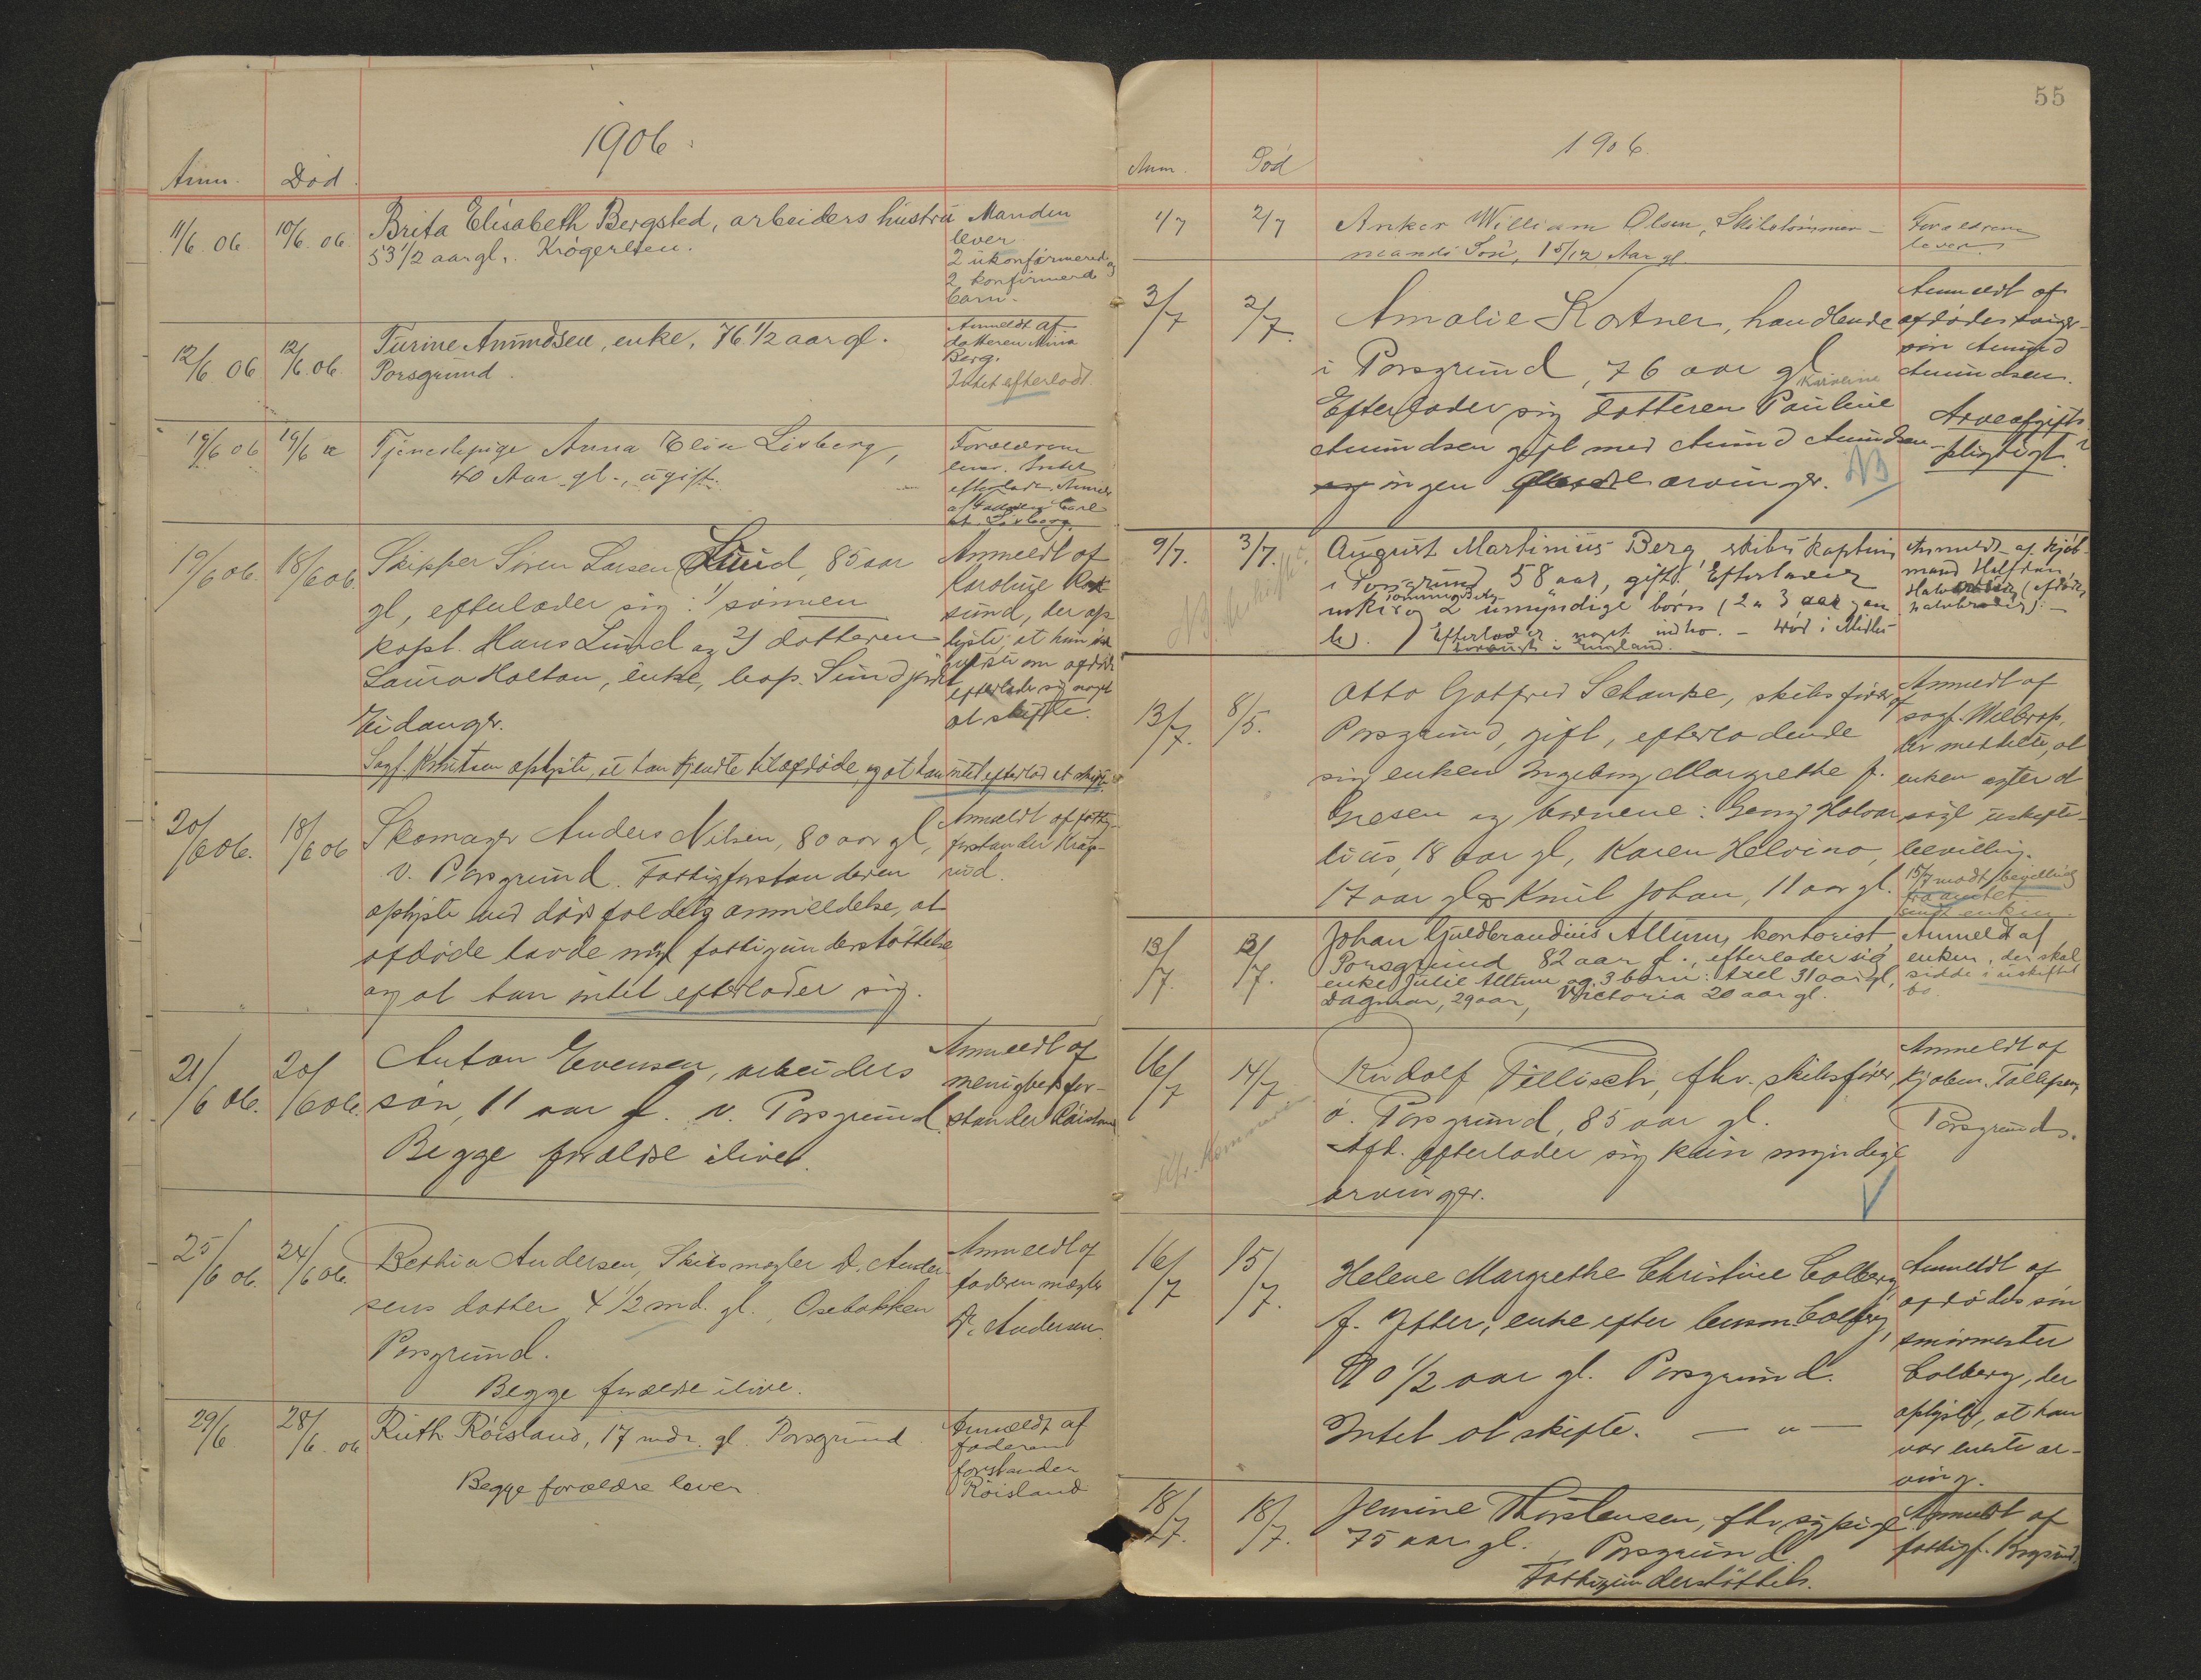 1906.
Anm. Död.
11/6. 06 10/6. 06 Brita Elisabeth Bergsted, arbeiders hustru
53 1/2 aar gl.
Manden
lever
2 ukonfirmerede og
2 konfirmerede
barn.
12/6 06 12/6. 06. Turine Amundsen, enke, 76 1/2 aar gl.
Porsgrund.
Anmeldt af
datteren
Berg.
Intet efterladt.
19/6 06 19/6 Tjenestepige Anna Elise Lixberg,
40 Aar gl., ugift.
Forældrene
lever. Intet
19/6 06. 18/6 06. Skipper Sören Larsen Lund, 85 aar
gl, efterlader sig: 1/ sönnen
kapt. Hans Lund og 2/ datteren
Laura Holtan, enke, bop.
Eidanger.
Anmeldt af
Karoline
sund, der op
lyste, at hun
om afdöde
efterlader sig noget
at skifte.
Sagf. Knutsen oplyste, at han kjendte til afdöde, og at han intet efterlod at skifte.
20/6 06. 18/6 06 Skomager Anders Nilsen, 80 aar gl,
v. Porsgrund. Fattigforstanderen
oplyste ved dödsfaldets anmeldelse, at
afdöde havde nydt fattigunderstöttelse
og at han intet efterlader sig.
Anmeldt af fattig-
forstander
21/6 06. 20/6 06. Anton Evensen, arbeiders
sön, 11 aar gl. v. Porsgrund.
Begge forældre ilive.
Anmeldt af
menighedsfor-
stander Röisland
25/6 06. 24/6 06. Skibsmægler D. Ander
sens datter 4 1/2 md. gl., Osebakken
Porsgrund.
Begge forældre ilive.
Anmeldt af
faderen mægler
D. Andersen.
29/6 28/6. 06 Ruth Röisland, 17 mdr. gl. Porsgrund
Begge forældre lever
Anmeldt af
faderen
forstander
Röisland
55
1906.
Anm. Död
1/7 2/7 Anker William Olsen, Skibstömmer-
mands Sön, 15/12 Aar gl.
Forældrene
lever
3/7 2/7. Amalie Kostner, handlende
i Porsgrund, 76 aar gl
Karoline
Efterlader sig datteren Pauline
Amundsen gift med Amund Amundsen
og ingen arvinger. NB
Anmeldt af
afdödes sviger-
sön Amund
Amundsen.
Arveafgifts-
pligtigt?
9/7. 3/7. August Martinius Berg, skibskaptein
i Porsgrund 58 aar, gift. Efterlader
enke og 2 umyndige börn (2 og 3 aar gam
le). Efterlader noget indbo. – Död i Midles-
brough i England.
Anmeldt af kjöb-
mand Halfdan
Halvorsen (afdödes
halvbroder). –
13/7. 8/5. Otto Gotfred Schanke, skibsförer af
Porsgrund, gift, efterladende
sig enken Ingeborg Margrethe f.
og börnene: Georg Halvar
18 aar gl, Karen Helvine
17 aar gl og Knut Johan, 11 aar gl.
Anmeldt af
sagf. Wilbrop.
der meddelte, at
enken agter at
sögt uskifte-
bevilling.
15/7 modt. bevilling
fra amtet
sendt enken.
13/7. 13/7. Johan Guldbrandius Altum, kontorist,
Porsgrund 82 aar gl., efterlader sig
enke Julie Altum og 3 börn: Axel 31 aar gl,
Dagmar, 29 aar, Victoria 20 aar gl.
Anmeldt af
enken, der skal
sidde i uskiftet
bo.
16/7 14/7 Rudolf Fillisch, fhv. skibsförer,
ö. Porsgrund, 85 aar gl.
Afd. efterlader sig kun myndige
arvinger.
Anmeldt af
kjöbm. Tollefsen,
Porsgrund.
16/7 15/7. Helene Margrethe Christine Colberg,
f. enke efter Colberg,
1/2 aar gl. Porsgrund.
Intet at skifte. — " —
Anmeldt af
afdödes sön
murmester
Colberg, der
oplyste, at han
var eneste ar-
ving.
18/7. 18/7. Jemine Thorstensen, fhv. sypige
75 aar gl. Porsgrund.
Fattigunderstöttels.
Anmeldt af
fattigf.